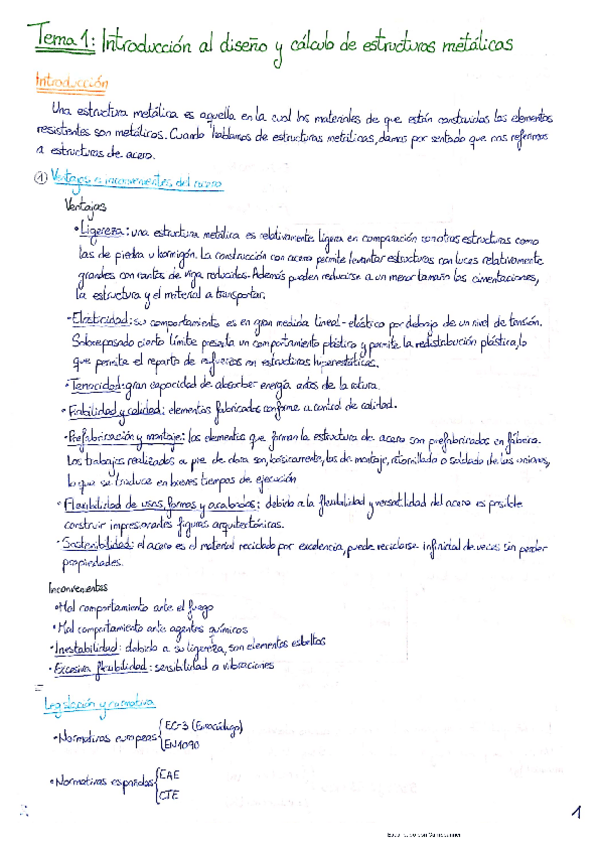 Tema 1: Introducción al diseño y cálculo de estructuras metálicas
Introducción
Una estructura metálica es aquella en la cual los materiales de que están construidas los elementos
resistentes son metálicos. Cuando hablamos de estructuras metálicas, damos por sentado que nos referimos
a estructuras de acero.
① Ventajas e inconvenientes del acero
Ventajas
• Ligereza: una estructura metálica es relativamente ligera en comparación con otras estructuras como
las de piedra u hormigón. La construcción con acero permite levantar estructuras con luces relativamente
grandes con cantos de viga reducidos. Además pueden reducirse a un menor tamaño las cimentaciones,
la estructura y el material a transportar.
• Elasticidad: su comportamiento es en gran medida lineal-elástico por debajo de un nivel de tensión.
Sobrepasado cierto límite presenta un comportamiento plástico y permite la redistribución plástica, lo
que permite el reparto de esfuerzos en estructuras hiperestáticas.
• Tenacidad: gran capacidad de absorber energía antes de la rotura.
• Fiabilidad y calidad: elementos fabricados conforme a control de calidad.
• Prefabricación y montaje: los elementos que forman la estructura de acero son prefabricados en fábrica.
Los trabajos realizados a pie de obra son, básicamente, los de montaje, atornillado o soldado de las uniones,
lo que se traduce en breves tiempos de ejecución
• Flexibilidad de usos, formas y acabados: debido a la flexibilidad y versatilidad del acero es posible
construir impresionantes figuras arquitectónicas.
• Sostenibilidad: el acero es el material reciclado por excelencia, puede reciclarse infinidad de veces sin perder
propiedades.
Inconvenientes
• Mal comportamiento ante el fuego
• Mal comportamiento ante agentes químicos
• Inestabilidad: debido a su ligereza, son elementos esbeltos
• Excesiva flexibilidad: sensibilidad a vibraciones
Legislación y normativa
• Normativas europeas { EC-3 (Eurocódigo)
EN1090
• Normativas españolas { EAE
CTE
1